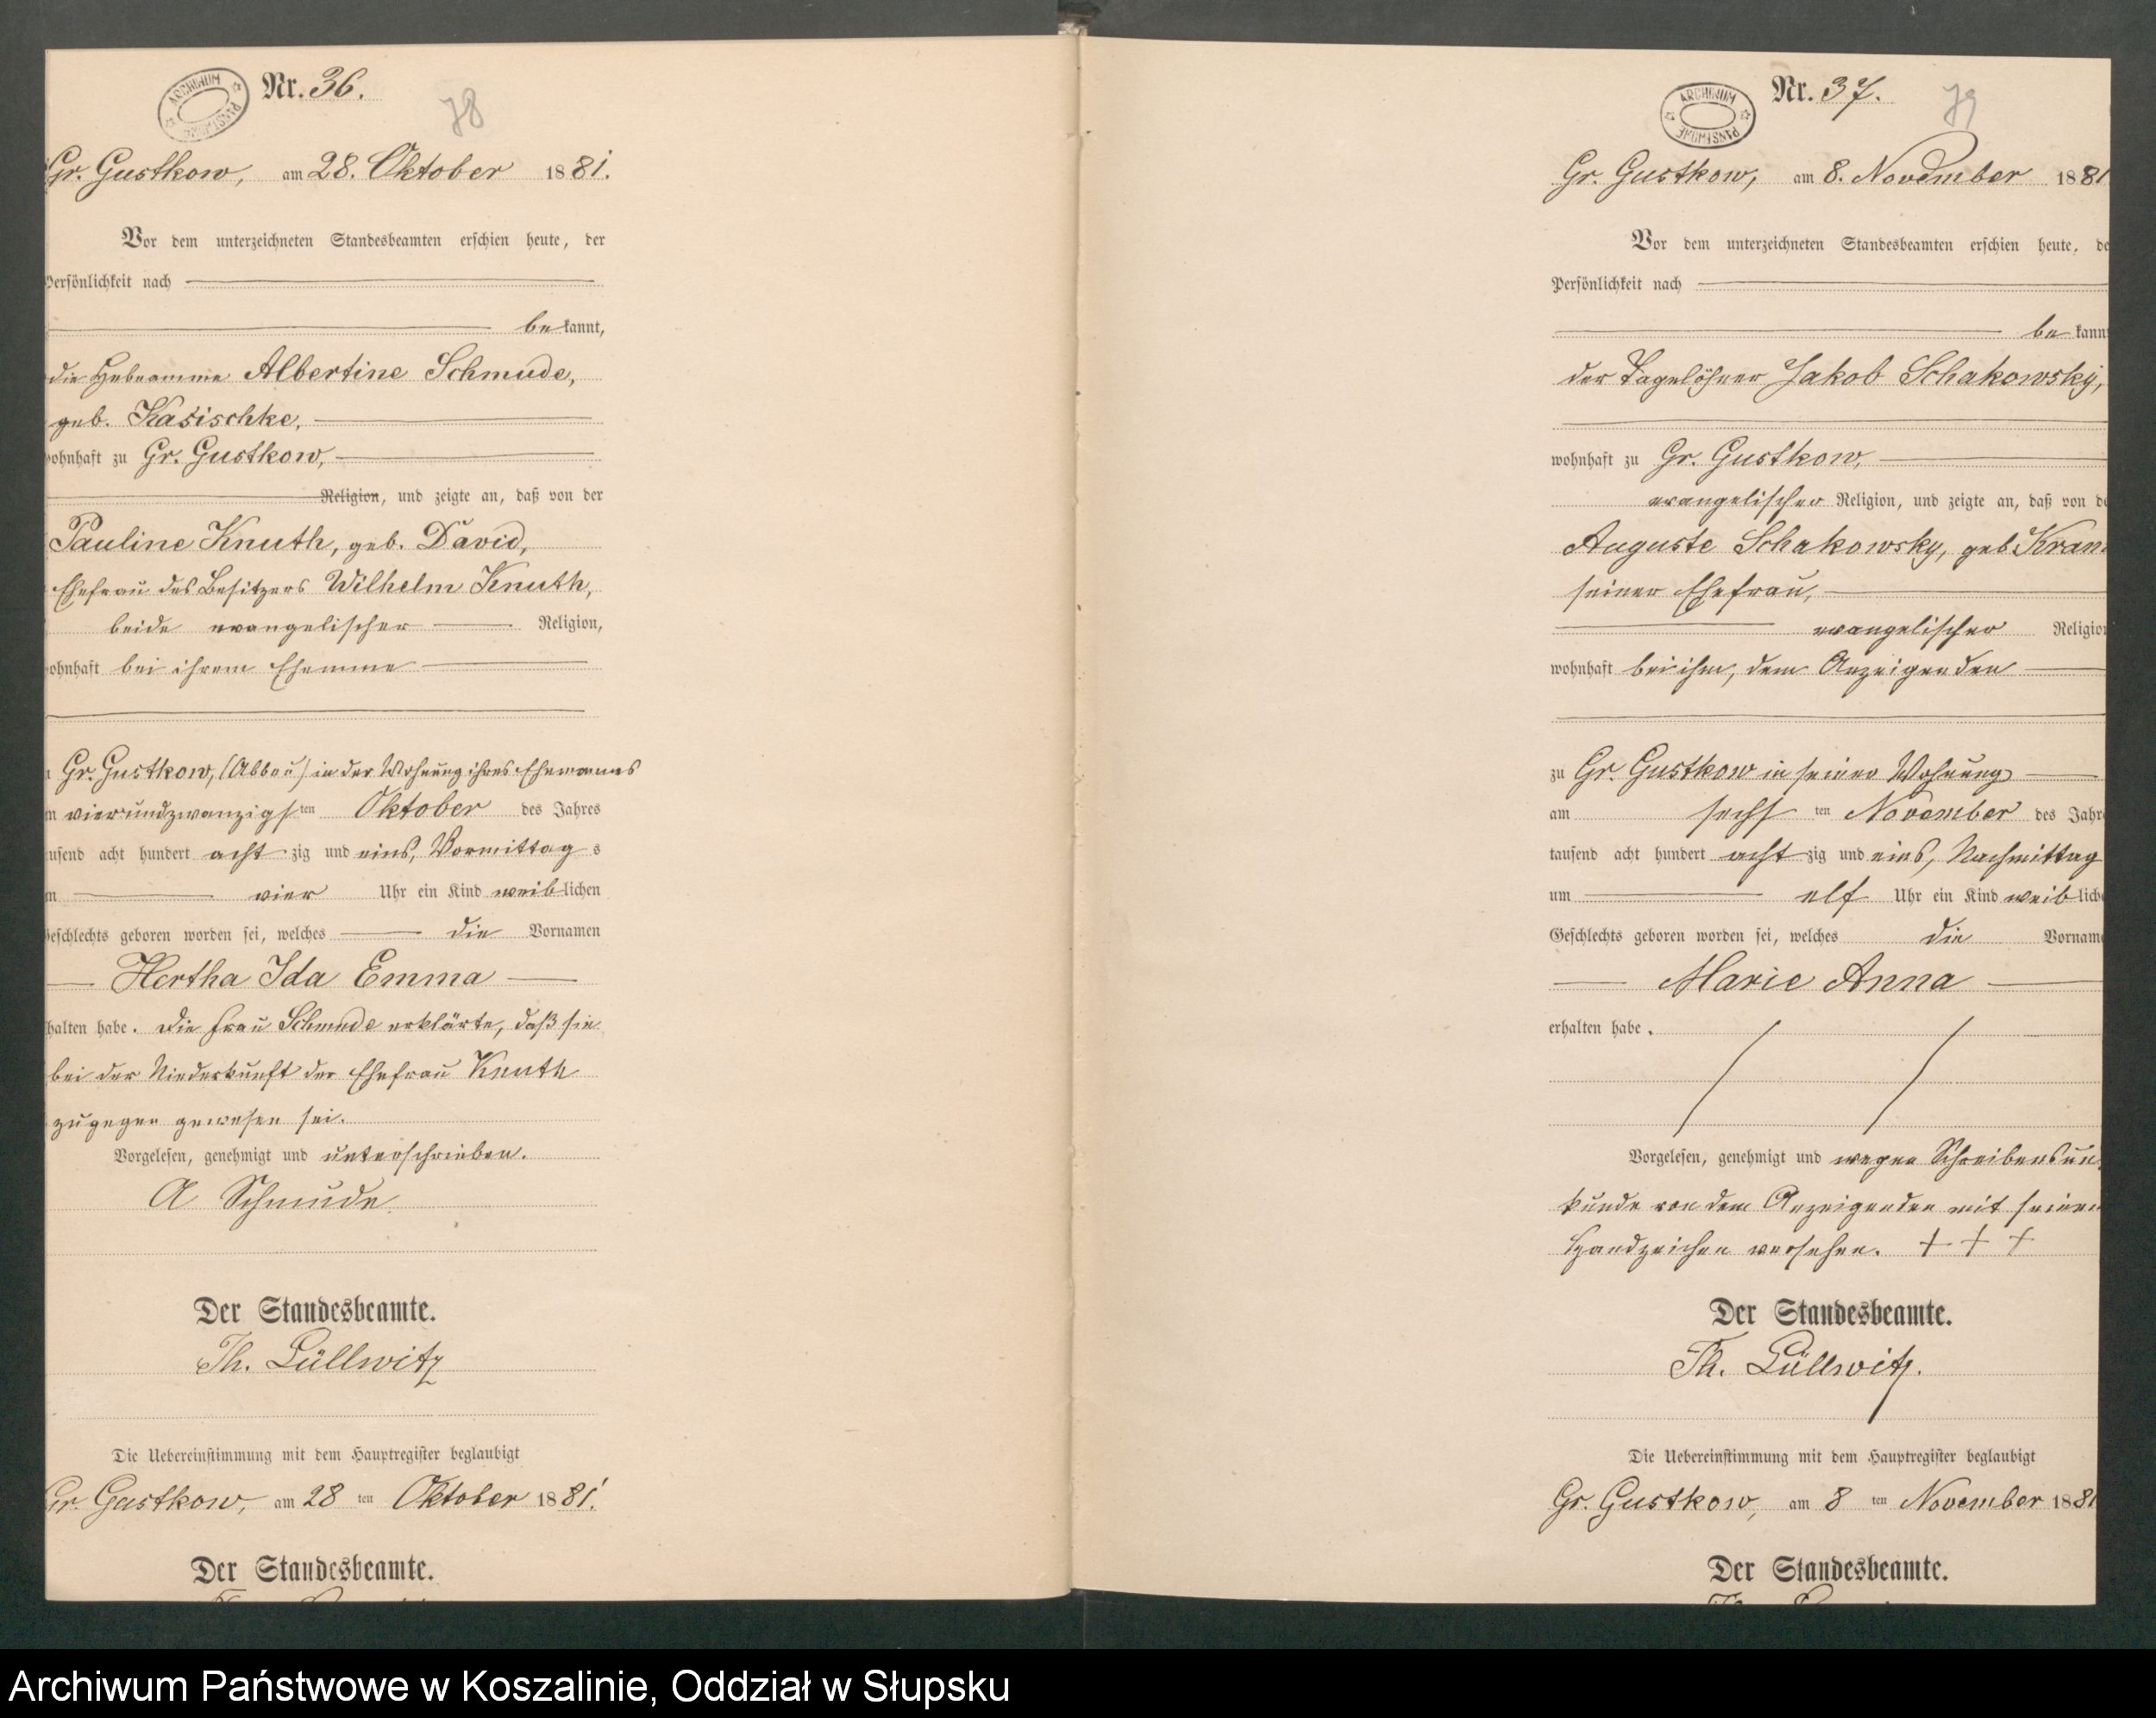 ARCHIWUM PAŃSTWOWE
Nr. 36.
78
Gr. Gustkow, am 28. Oktober 1881.
Vor dem unterzeichneten Standesbeamten erschien heute, der
Persönlichkeit nach
bekannt,
die Hebeamme Albertine Schmude,
geb. Kasischke,
wohnhaft zu Gr. Gustkow,
Religion, und zeigte an, daß von der
Pauline Knuth, geb. David,
Ehefrau des Besitzers Wilhelm Knuth,
beide evangelischer Religion,
wohnhaft bei ihrem Ehemme
Gr. Gustkow, (Abbau) in der Wohnung ihres Ehemannes
vierundzwanzigsten Oktober des Jahres
tausend acht hundert achtzig und eins, Vormittags
vier Uhr ein Kind weiblichen
Geschlechts geboren worden sei, welches die Vornamen
Hertha Ida Emma
halten habe. Die Frau Schmude erklärte, daß sie
bei der Niederkunft der Ehefrau Knuth
zugegen gewesen sei.
Vorgelesen, genehmigt und unterschrieben.
A Schmude.
Der Standesbeamte.
Th. Lüllwitz
Die Uebereinstimmung mit dem Hauptregister beglaubigt
Gr. Gustkow, am 28 ten Oktober 1881.
Der Standesbeamte.
ARCHIWUM PAŃSTWOWE
Nr. 37.
79
Gr. Gustkow, am 8. November 1881
Vor dem unterzeichneten Standesbeamten erschien heute, de
Persönlichkeit nach
bekann
der Tagelöhner Jakob Schakowsky,
wohnhaft zu Gr. Gustkow,
evangelischer Religion, und zeigte an, daß von de
Auguste Schakowsky, geb. Kran
seiner Ehefrau,
evangelischer Religio
wohnhaft bei ihm, dem Anzeigenden
zu Gr. Gustkow in seiner Wohnung
am sechsten November des Jahr
tausend acht hundert achtzig und eins, Nachmittag
um elf Uhr ein Kind weiblich
Geschlechts geboren worden sei, welches die Vorname
Marie Anna
erhalten habe.
Vorgelesen, genehmigt und wegen Schreibensun
kunde von dem Anzeigenden mit seinen
Handzeichen versehen. + + +
Der Standesbeamte.
Th. Lüllwitz.
Die Uebereinstimmung mit dem Hauptregister beglaubigt
Gr. Gustkow, am 8 ten November 1881
Der Standesbeamte.
Archiwum Państwowe w Koszalinie, Oddział w Słupsku